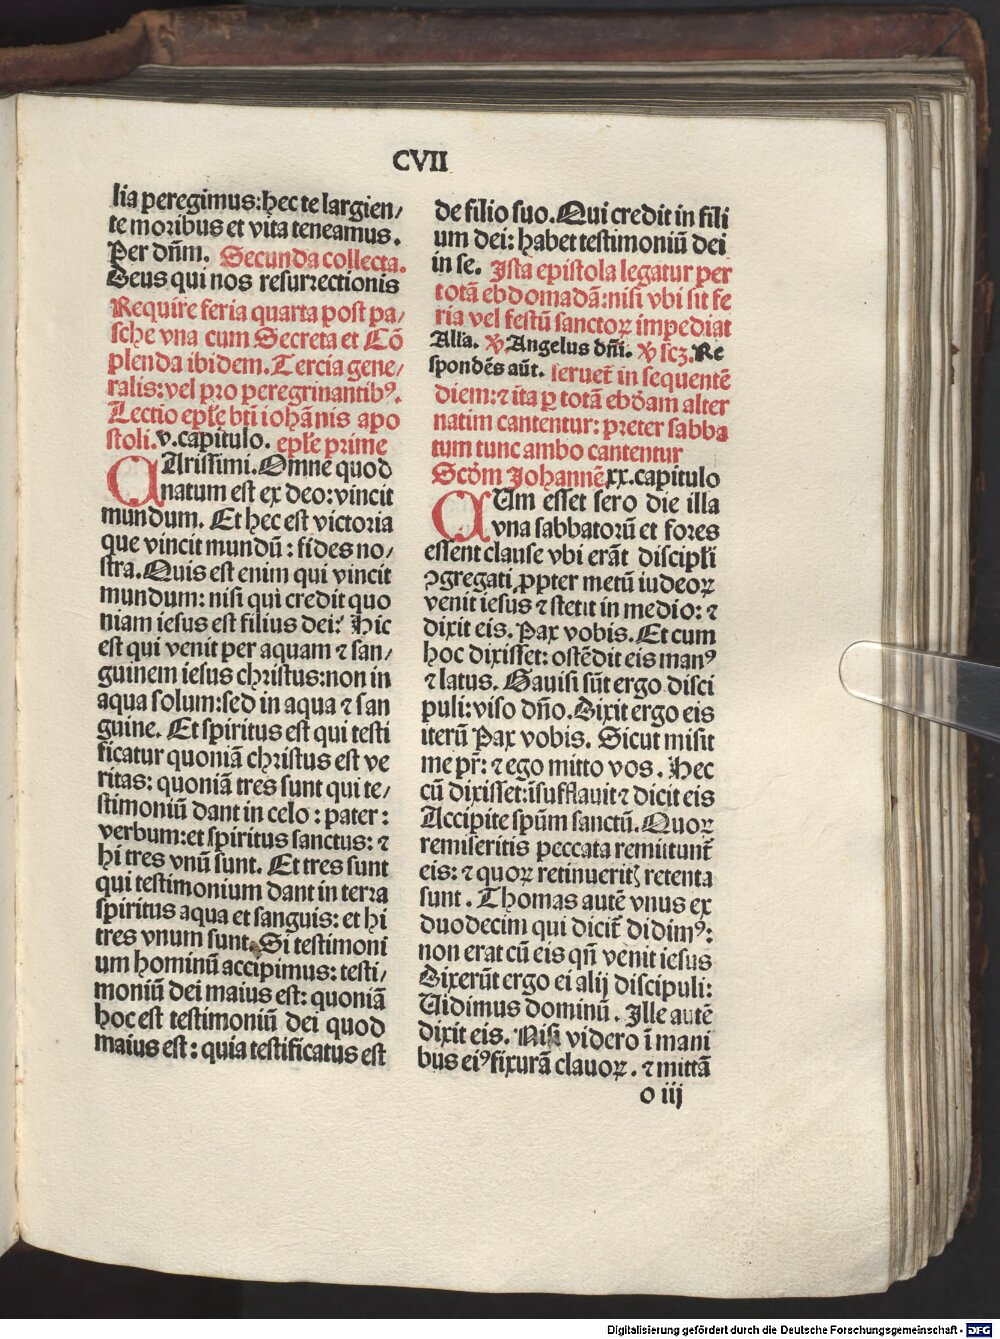 CVII
lia peregimus: hec te largien/
te moribus et vita teneamus.
Per dñm. Secunda collecta.
Deus qui nos resurrectionis
Require feria quarta post pa/
sche vna cum Secreta et Cõ
plenda ibidem. Tercia gene/
ralis: vel pro peregrinantibꝰ.
Lectio epłe bti iohãnis apo
stoli. v. capitulo. epłe prime
CArissimi. Omne quod
natum est ex deo: vincit
mundum. Et hec est victoria
que vincit mundũ: fides no/
stra. Quis est enim qui vincit
mundum: nisi qui credit quo
niam iesus est filius dei? Hic
est qui venit per aquam ⁊ san/
guinem iesus christus: non in
aqua solum: sed in aqua ⁊ san
guine. Et spiritus est qui testi
ficatur quoniã christus est ve
ritas: quoniã tres sunt qui te/
stimoniũ dant in celo: pater:
verbum: et spiritus sanctus: ⁊
hi tres vnũ sunt. Et tres sunt
qui testimonium dant in terra
spiritus aqua et sanguis: et hi
tres vnum sunt. Si testimoni
um hominũ accipimus: testi/
moniũ dei maius est: quoniã
hoc est testimoniũ dei quod
maius est: quia testificatus est
de filio suo. Qui credit in fili
um dei: habet testimoniũ dei
in se. Ista epistola legatur per
totã ebdomadã: nisi vbi sit fe
ria vel festũ sanctoꝝ impediat
Alła. ℣ Angelus dñi. ℣ scꝫ. Re
spondẽs aũt. seruet̃ in sequentẽ
diem: ⁊ ita ꝑ totã ebdam alter
natim cantentur: preter sabba
tum tunc ambo cantentur
Scđm Johannẽ xx. capitulo
CUm esset sero die illa
vna sabbatorũ et fores
essent clause vbi erãt discipłi
ꝯgregati ꝓpter metũ iudeoꝝ
venit iesus ⁊ stetit in medio: ⁊
dixit eis. Pax vobis. Et cum
hoc dixisset: ostẽdit eis manꝰ
⁊ latus. Gauisi sũt ergo disci
puli: viso dño. Dixit ergo eis
iterũ Pax vobis. Sicut misit
me pr̃: ⁊ ego mitto vos. Hec
cũ dixisset: ĩsufflauit ⁊ dicit eis
Accipite spũm sanctũ. Quoꝝ
remiseritis peccata remittunt̃
eis: ⁊ quoꝝ retinueritꝭ retenta
sunt. Thomas autẽ vnus ex
duodecim qui dicit̃ didimꝰ:
non erat cũ eis qñ venit iesus
Dixerũt ergo ei alij discipuli:
Uidimus dominũ. Ille autẽ
dixit eis. Nisi videro ĩ mani
bus eiꝰ fixurã clauoꝝ. ⁊ mittã
o iij
Digitalisierung gefördert durch die Deutsche Forschungsgemeinschaft - DFG